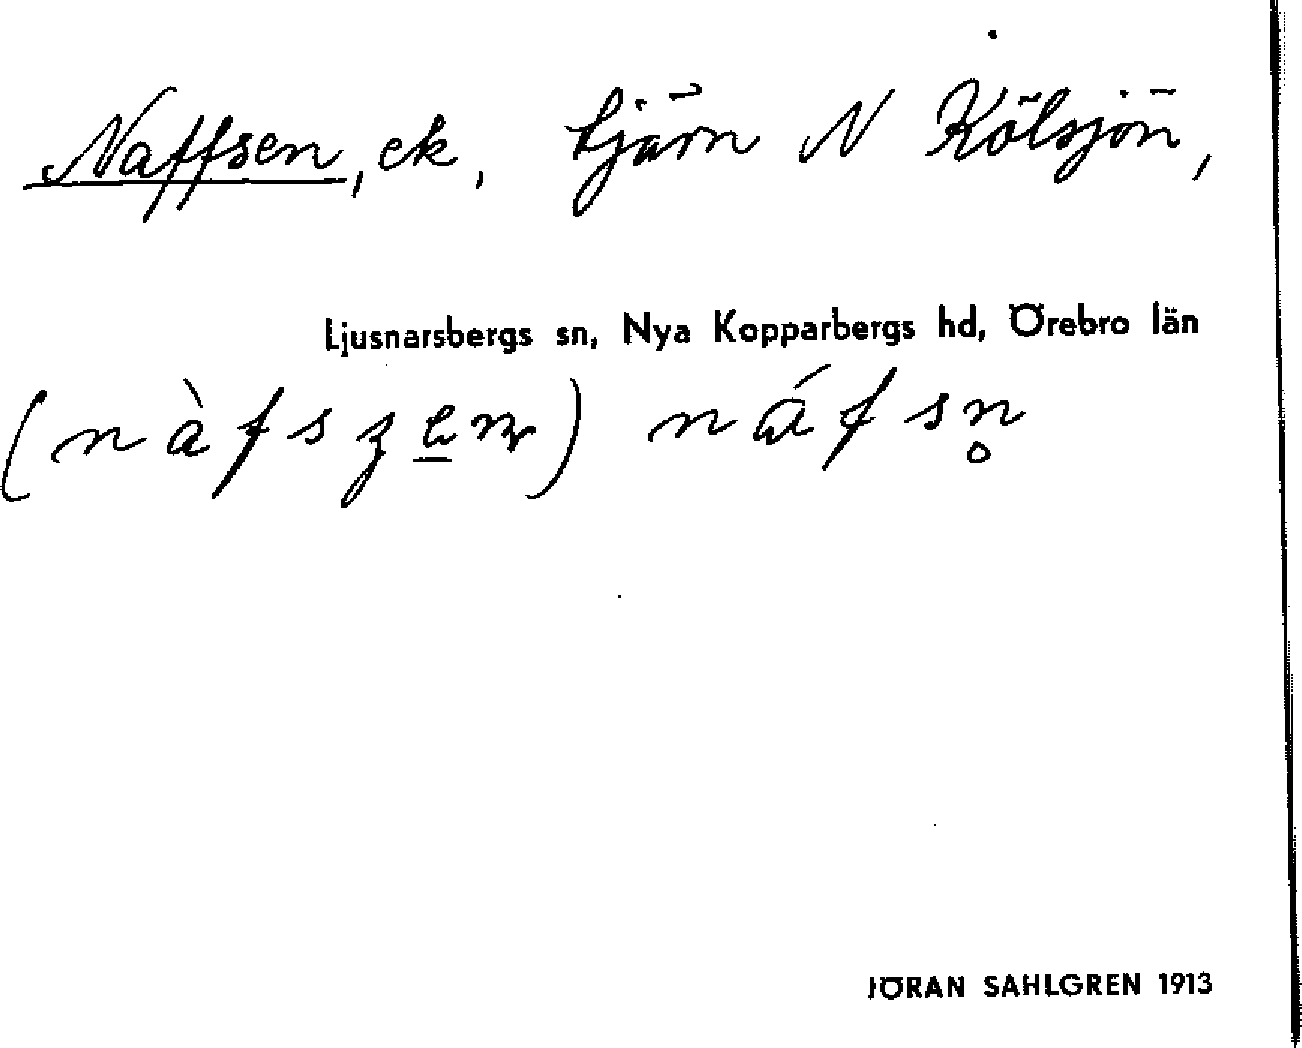 Naffsen, ek, tjärn N Kölsjön,
Ljusnarsbergs sn, Nya Kopparbergs hd, Örebro län
(nàfsʒe̲n) náfsn̥
JÖRAN SAHLGREN 1913